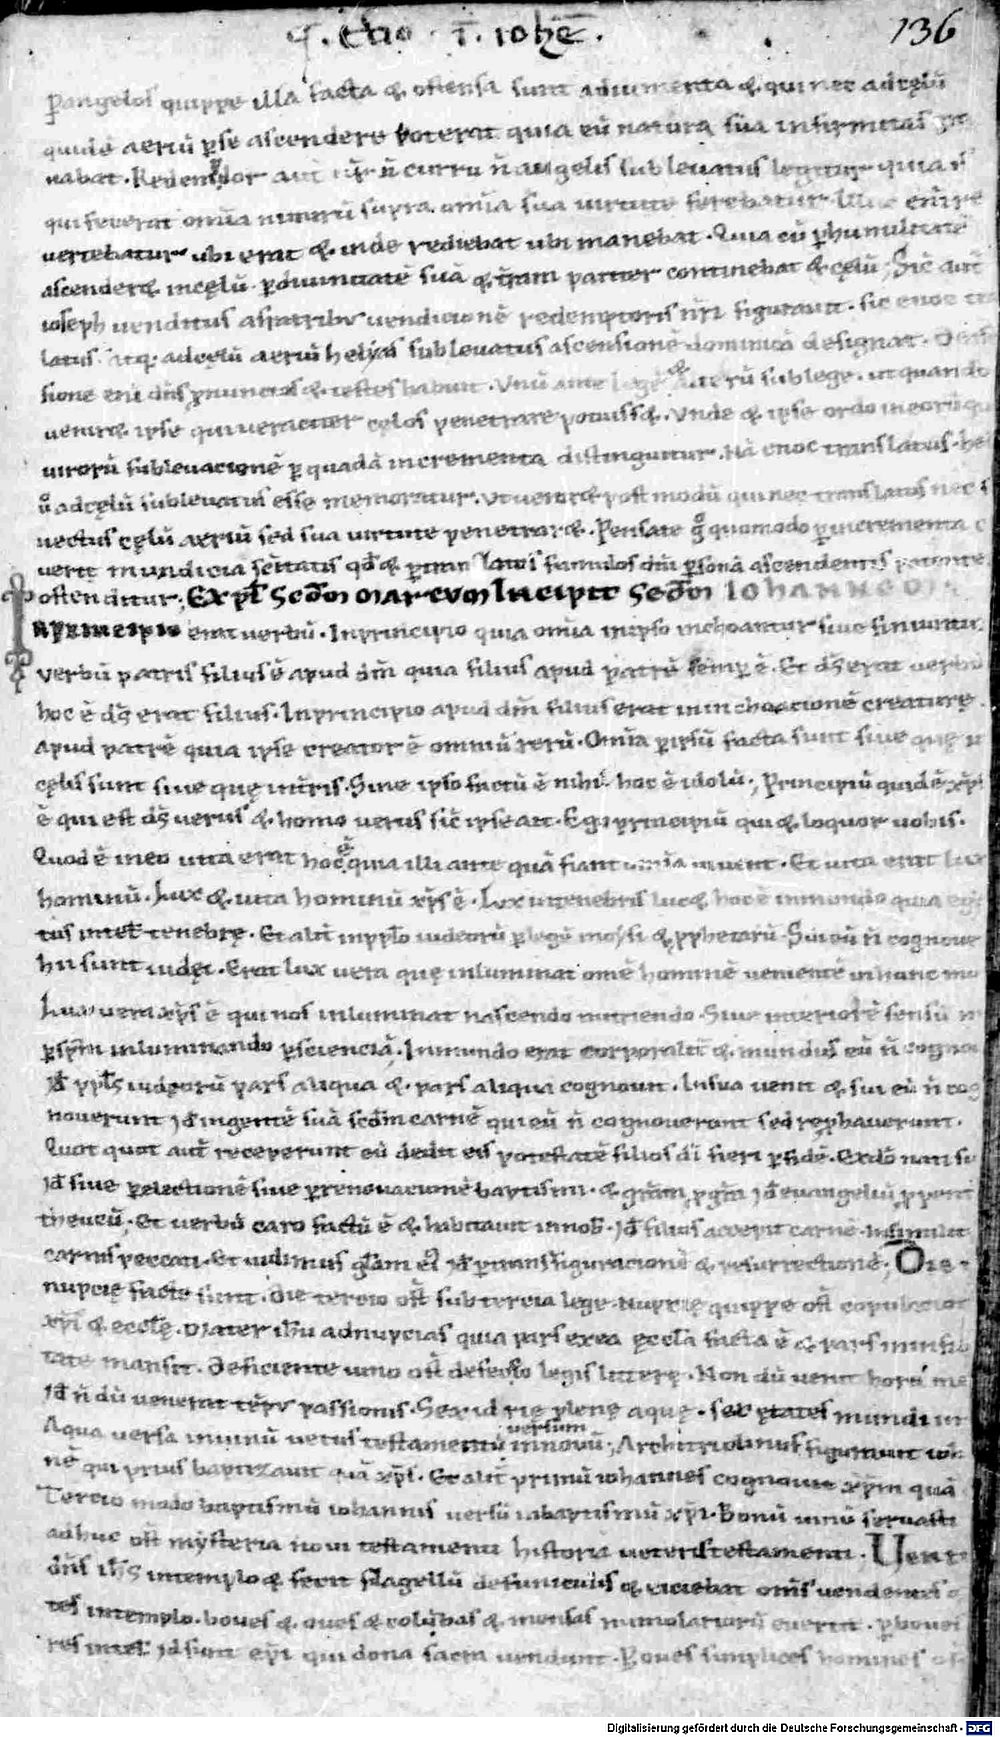 Io. ihoē.
136
Pangelos quippe illa facta & ostensa sunt adiumenta & qui nec ad cęlū
quidē aeriū p se ascendere poterat quia eū natura sua infirmitas
nabat. Redemptor aut nr n curru n angelis subleuatus legitur quia is
qui fecerat omia nimirū supra omia sua uirtute ferebatur. Illuc eni re
uertebatur ubi erat & inde rediebat ubi manebat. Quia cū p humanitatē
ascender& in cęlū. p diuinitatē suā & trām pariter continebat & cęlū; Sic aut
ioseph uenditus a fratribus uendicionē redemptoris nri figurauit. sic enoc trans
latus. atq. ad cęlū aeriū helyas subleuatus ascensionē dominicā designat.
sione eni dns pnuncios & testes habuit. Vnū ante legē & alterū sub lege. ut quando
uenir& ipse qui ueraciter cęlos penetrare potuiss&. Vnde & ipse ordo in eorū
uirorū subleuacionē p quadā incrementa distinguitur. Nā enoc translatus. he
u ad cęlū subleuatus esse memoratur. Ut uenir& post modū qui nec translatus nec
uectus cęlū aeriū sed sua uirtute penetrar&. Pensate g quomodo p incrementa
uerit mundicia scitatis qd & p translatos famulos dni p sonā ascendentis patente
ostenditur; Expl scdm marcum Incipit scdm Iohannem
In principio erat uerbū. In principio quia omia in ipso inchoantur siue finiuntur
Verbū patris filius ē apud dm quia filius apud patrē semp ē. Et ds erat uerbū
hoc ē ds erat filius. In principio apud dm filius erat in inchoacionē creaturę.
apud patrē quia ipse creator ē omniū rerū. Omia p ipsū facta sunt siue quę in
cęlis sunt siue quę in tris. Sine ipso factū ē nihil hoc ē idolū; Principiū quidē xps
ē qui est ds uerus & homo uerus sic ipse ait. Ego principiū qui & loquor uobis.
Quod ē in eo uita erat hoc ē quia illi ante quā fiant omia uiuent. Et uita erat lux
hominū. Lux & uita hominū xps ē. Lux in tenebris luc& hoc ē in mundo quia
tus intel tenebrę. Et alit in pplo iudeorū p legē moysi & pphetarū. Sui eū n cognoue
hii sunt iudęi. Erat lux uera quę inluminat omē hominē uenientē in hunc mu
Lux uera xps ē qui nos inluminat nascendo nutriendo. Siue interiorē sensū
p spm inluminando p scienciā. In mundo erat corporalit & mundus eū n cogno
Id ppls iudeorū pars aliqua & pars aliqua cognouit. In sua uenit & sui eū n cog
nouerunt id in gentē suā scdm carnē qui eū n cognouerunt sed rephauerunt.
Quot quot aut receperunt eū dedit eis potestatē filios di fieri p fidē. Ex dō nati s
Id siue p electionē siue p renouacionē baptismi. & grām p gra id euangeliū p pent
theucū. Et uerbū caro factū ē & habitauit in nob. Id filius accepit carnē. In similit
carnis peccati. Et uidimus glam ei id p transfiguracionē & resurrectionē; Die
nupcię factę sunt. Die tercio ost sub tercia lege. nupcię quippe ost copulacio
xpi & ecclę. Mater ihu ad nupcias quia pars ex ea eccla facta ē & pars in infid
tate mansit. Deficiente uino ost defectio legis litterę. Non dū uenit hora mea
Id n dū uenerat tēpus passionis. Sex idrię plenę aquę. sex ętates mundi
Aqua uersa in uinū uetus testamentū uersum in nouū; Architriclinus figurauit ioh
nē qui prius baptizauit quā xps. Et alit primū iohannes cognouit xpm quā
Tercio modo baptismū iohannis uersū in baptismū xpi. Bonū uinū seruasti
adhuc ost mysteria noui testamenti historia ueteris testamenti. Uenit
dns ihs in templo & fecit flagellū de funiculis & eiciebat oms uendentes
tes in templo. boues & oues & columbas & mensas numulariorū euertit. p boues
res intel. id sunt epi qui dona sacra uendunt. P oues simplices homines
Digitalisierung gefördert durch die Deutsche Forschungsgemeinschaft - DFG